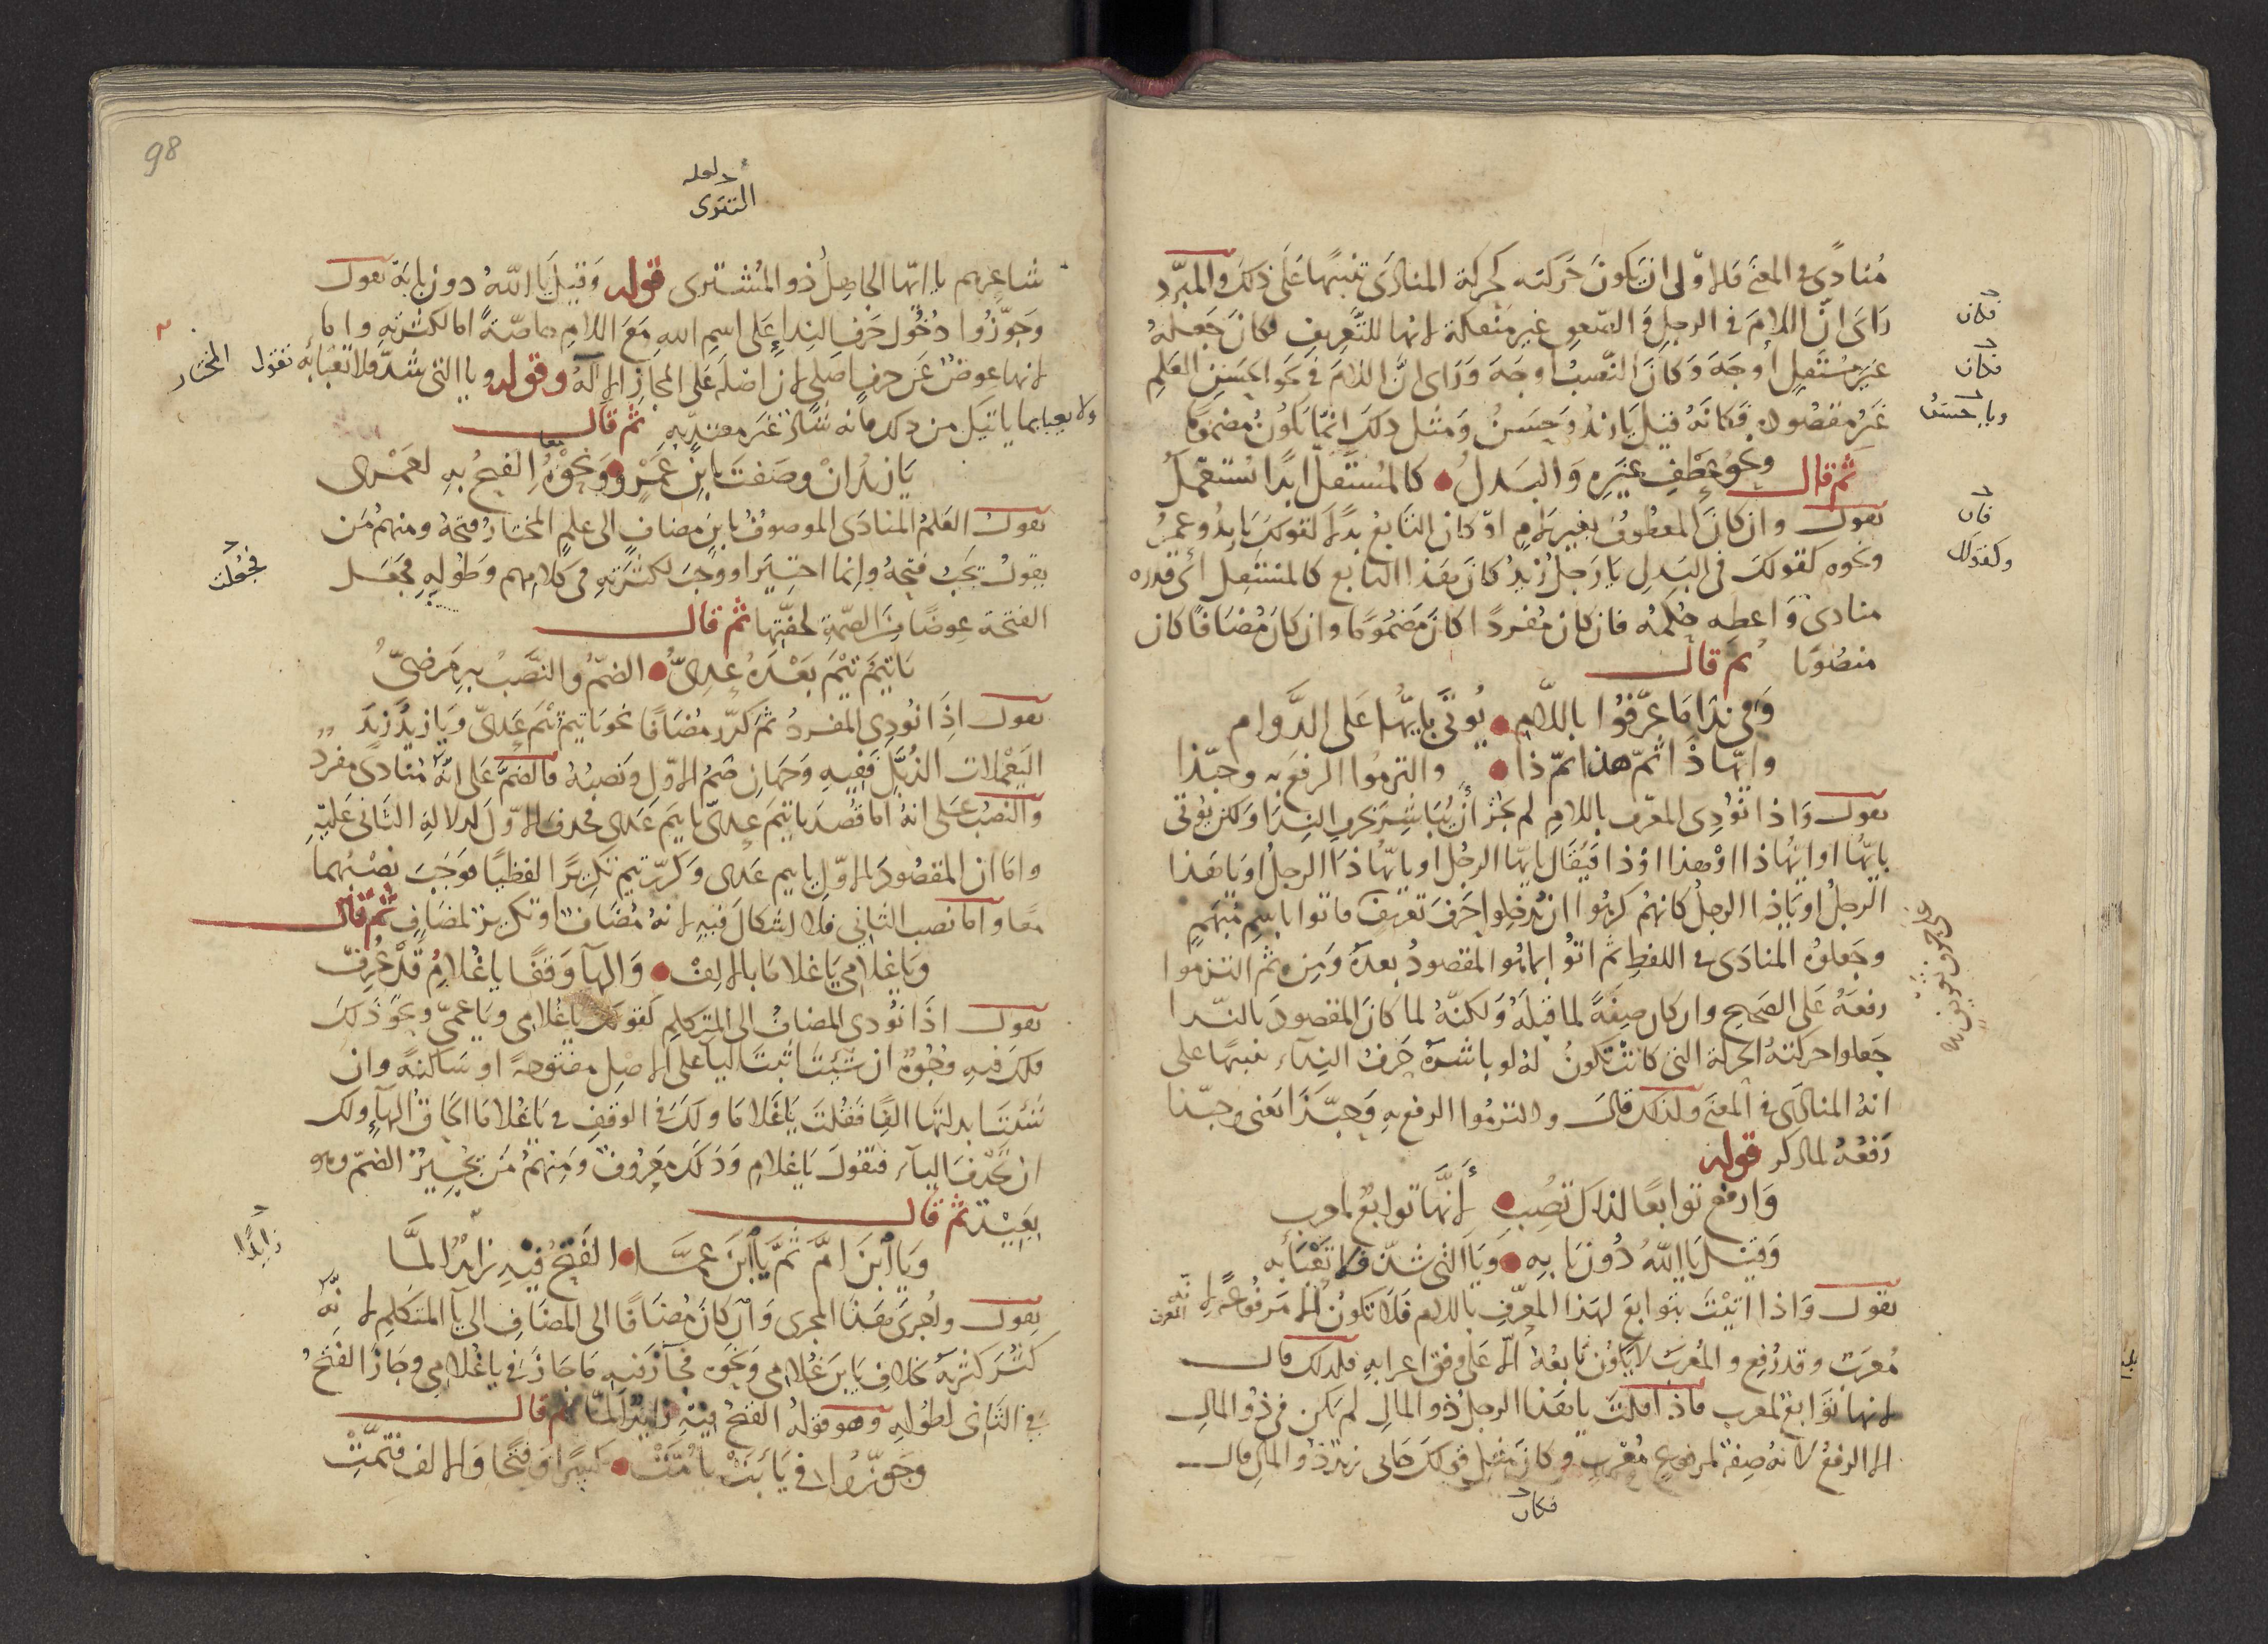 مُنادًى فى المعنى فالاوّلى ان يكونَ حَركته كحركة المنادَى تنبيهًا عَلى ذلكَ والمبرّد
رَاىَ انّ اللامَ فى الرجلِ وَ الصّعوِ غير منفكة لانها للتَّعريف فكانَ جَعلهُ
غيَر مُستَقلٍ اوجَهَ وَكانَ النّصبُ اوجهَ وَرَاى انَّ اللامَ فى نحو الحسَنِ العَلمِ
غَيرُ مقصُودهٍ فكانهُ قيلَ يازيدُ وَحَسَنُ وَمثل ذلكَ انّما يَكُونُ مضمومًا
ثم قال ونحوُ عطْفِ غيَرِه وَالبَدلُ كالمُستَقلّ ابدًا مُستعمَلُ
يقول وان كانَ المعطُوفُ بغير لامٍ اوْ كان التابعُ بدلًا كقولكَ يا زيدُ وعمرُ
ونحوه كقولكَ فى البَدلِ يا رَجلُ زيدُ كانَ هَذا التابع كالمستقِل أى قدره
منادى وَاعطهِ حُكمهُ فان كان مُفردًا كانَ مَضمُومًا وان كانَ مُضافًا كان
منصُوبا ثم قال
وَفى نِدَا مَا عرّفُوا باللّام يُؤتَى بايّها عَلى الدَّوام
وايّها ذا ثمّ هذا ثمّ ذا والتزمُوا الرفعَ به وحبّذا
يقول وَاذا نُودِى المعَرّف باللامِ لم يجُز أنْ يُبَاشِرَ بحرفِ النِدَا وَلكن يؤتى
بايّها اوايّها ذا اوْهذا اوْذا فيُقال يا ايّها الرجلُ او يا ايّها ذا الرجلُ او يا هَذا
الرجلُ او يَا ذِا الرجلُ كانهُم كرِهُوا ان يُدخِلوا حَرفَ تعريفٍ فاتوا باسمٍ مُبهَمٍ
وجَعلوهُ المنادَى فى اللفظِ ثم اتوا بما هُو المقصودُ بعدهُ وَمن ثم التزموا
رفعَهُ عَلى الصَحيحِ وان كان صِفَةً لما قبلَهُ وَلكنّهُ لما كانَ المقصودَ بالنّدا
جَعلوا حركتهُ الحركة التى كانَتْ تكونُ لهُ لو باشرهُ حَرفُ النِداء تنبيهًا على
انهُ المنادَى فى المعنَى ولذلكَ قالَ والتزمُوا الرفع بهِ وَحبّذَا يَعنى وحبّذا
رَفعُهُ لما ذكر قوله
وَارفع توابعًا لذاكَ تُصِبِ لأنَّها توابعٌ لمعرب
وَقيَل يَا اللهُ دُونَ يَا بِهِ وَيَا التى شذّ فلا تَعْبَأ به
يقول وَاذا اتيْتَ بتوابعَ لهَذا المعرّفِ باللامِ فَلا تكونُ الّا مَرفُوعةً لانه
مُعرَبٌ وقد رُفِع والمُعربُ لا يَكُون تابعُهُ الّا عَلى وفق اعرابهِ فلذلك قال
لانها توَابعٌ لمعربٍ فاذا قلتَ يا هَذا الرجلُ ذو المالِ لم يَكن فى ذُو المالِ
الا الرفعُ لانهُ صِفة لمرفوعٍ مُعْربٍ وكانَ مثل قولكَ جَانى زيدٌ ذو المالِ قال
فكان
فكان
فكان
ويا حسنُ
فان
وكقولك
98
لعله
التقوى
شاعِرهم يا ايّها الجاهِلُ ذو المُشترى قوله وَقيلَ يَا اللهُ دون يا بهَ يقول
وجَوّزُوا دُخُول حَرفِ النِداءِ عَلى اسمِ اللهِ مَعَ اللامِ خاصّةً اما لكثرَتهِ واما
لانها عِوضٌ عَن حرفٍ اصَلِى لان اصْلهَ عَلى المجازِ الالهُ وقوله ويا التى شذّ فلا تَعْبَأ به تقول
ولا يعبا بما ياتيكَ من ذلك فانه شَاذّ غيرَ معتدٍّ بهِ ثم قال
يَا زيدُ انْ وصَفتَ بابنِ عَمْرٍو وَنحْوُهُ الفتحُ بهِ لعَمْرى
يقول العَلمُ المنادَى الموصوفُ بابنٍ مضافٍ الى علمٍ المختارُ فتحهُ ومنهُم مَن
يقولُ يَجبُ فتحهُ وانما اختيرَ او وجبَ لكثرتهِ فى كلامهم وَطُولهِ فجَعَل
الفتحة عِوضًا مِنَ الضمّةِ لخفّتِها ثم قال
يَا تيمُ تيْمَ بَعْدَهُ عَدِىِّ الضمُّ والنصَبُ بهِ مَرضىُّ
يقول اذَا نُودِى المفردُ ثمَّ كرّر مُضَافًا نحو يا تيمُ تيْمَ عَدِىّ وَيَا زيدُ زيدَ
اليَعْملات الذُبَّلِ فَفيهِ وَجهانِ ضمُّ الاوّلِ وَنصبُهُ فالضمُّ عَلى انّهُ مُنادى مفردٌ
وَالنصَبُ عَلى انهُ اما قصَدَ يا تيمَ عَدِىّ يا تيمَ عَدِى فحذف الاوّلَ لدلالةِ الثانى عَليْهِ
واما ان المقصُودَ الاوّل يا تيم عَدى وَكرّر تيم تكريرًا لفظيًا فوَجبَ نصْبُهما
معًا واما نصب الثانى فَلا اشكالَ فيهِ لانهُ مُضافٌ او تكريرٌ لمضَافٍ ثم قال
وَيَا غلامِى يَا غلامَا بالالِفْ وَالهآ وَقفًا يا غُلامِ قَدْ عُرِفْ
يقول اذَا نُودى المضافُ الى المتكلمِ كقولكَ يا غلامِى ويَا عمّى ونحوَ ذلكَ
فلكَ فيهِ وُجُوهٌ ان شئتَ اثبتَّ اليآ على الاصِل مفتوحةً او سَاكنةً وان
شئتَ ابدلتَها الفًا فقُلتَ يَا غلامَا ولكَ فى الوقفِ فى يَا غلامَا الحاقُ الهآءِ ولك
ان تحْذفَ اليآء فتقُولَ يا غلامِ وَذلكَ مَعرُوف وَمنهمُ مَن يُجيزُ الضمّ وهو
بَعِيدٌ ثم قال
وَيَا ابنَ امَّ ثمَّ يَا ابنَ عَمَّا الفَتحُ فيهِ زايدٌ المَّا
يقول وَاُجرىَ هَذا المجرى وَان كانَ مُضافًا الى المضَافِ الى يآ المتكلمِ لانّه
كثُرَ كثرَتهُ بخلافِ يَا بنَ غلامِى وَنحوهِ فجَازَ فيهِ مَا جَازَ فى يا غلامِى وجَازَ الفتحُ
فى الثّانى لطُولهِ وهوَ قولهُ الفتحُ فيهِ زايدٌ المّا ثم قال
وَجَوّزُوا فى يَا أبَتْ يا امَّتْ كسَرًا وَفتحًا وَالالف فتمَّتْ
المختار
فجُعِلت
زايدًا